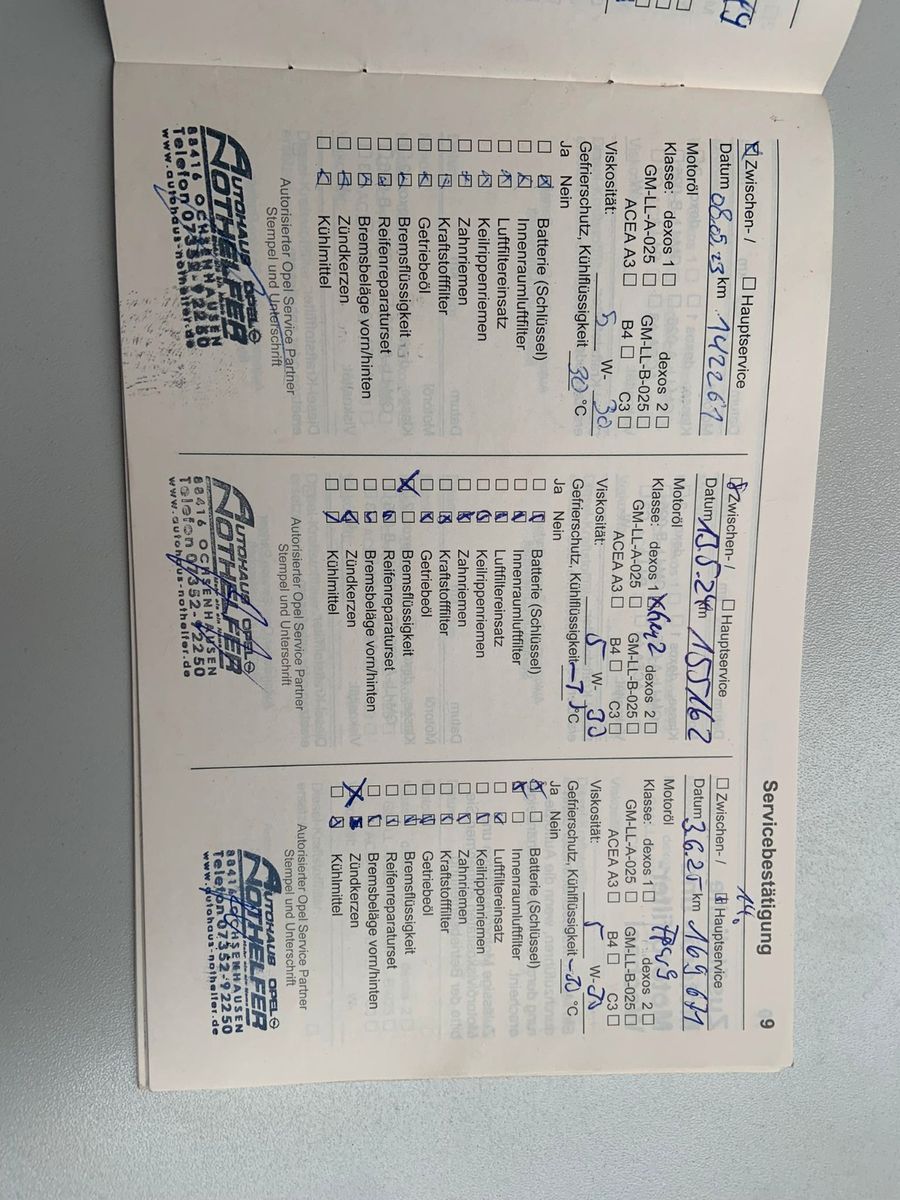 Servicebestätigung 9
☒ Zwischen- / ☐ Hauptservice
Datum 08.05.23 km 142261
Motoröl
Klasse: dexos 1 ☐ dexos 2 ☐
GM-LL-A-025 ☐ GM-LL-B-025 ☐
ACEA A3 ☐ B4 ☐ C3 ☐
Viskosität: 5 W- 30
Gefrierschutz, Kühlflüssigkeit 30 °C
Ja Nein
☐ ☒ Batterie (Schlüssel)
☐ ☒ Innenraumluftfilter
☐ ☒ Luftfiltereinsatz
☐ ☒ Keilrippenriemen
☐ ☒ Zahnriemen
☐ ☒ Kraftstofffilter
☐ ☒ Getriebeöl
☐ ☒ Bremsflüssigkeit
☐ ☒ Reifenreparaturset
☐ ☒ Bremsbeläge vorn/hinten
☐ ☒ Zündkerzen
☐ ☒ Kühlmittel
Autorisierter Opel Service Partner
Stempel und Unterschrift
AUTOHAUS OPEL
NOTHELFER
88416 OCHSENHAUSEN
Telefon 07352-92250
www.autohaus-nothelfer.de
☒ Zwischen- / ☐ Hauptservice
Datum 15.5.24 km 155162
Motoröl
Klasse: dexos 1 dexos 2 ☐
GM-LL-A-025 ☐ GM-LL-B-025 ☐
ACEA A3 ☐ B4 ☐ C3 ☐
Viskosität: 5 W- 30
Gefrierschutz, Kühlflüssigkeit °C
Ja Nein
☐ ☒ Batterie (Schlüssel)
☐ ☒ Innenraumluftfilter
☐ ☒ Luftfiltereinsatz
☐ ☒ Keilrippenriemen
☐ ☒ Zahnriemen
☐ ☒ Kraftstofffilter
☐ ☒ Getriebeöl
☒ ☐ Bremsflüssigkeit
☐ ☒ Reifenreparaturset
☐ ☒ Bremsbeläge vorn/hinten
☐ ☒ Zündkerzen
☐ ☒ Kühlmittel
Autorisierter Opel Service Partner
Stempel und Unterschrift
AUTOHAUS OPEL
NOTHELFER
88416 OCHSENHAUSEN
Telefon 07352-92250
www.autohaus-nothelfer.de
14.
☐ Zwischen- / ☒ Hauptservice
Datum 3.6.25 km 169671
Motoröl
Klasse: dexos 1 ☐ dexos 2 ☐
GM-LL-A-025 ☐ GM-LL-B-025 ☐
ACEA A3 ☐ B4 ☐ C3 ☐
Viskosität: 5 W- 30
Gefrierschutz, Kühlflüssigkeit -30 °C
Ja Nein
☒ ☐ Batterie (Schlüssel)
☒ ☐ Innenraumluftfilter
☐ ☒ Luftfiltereinsatz
☐ ☒ Keilrippenriemen
☐ ☒ Zahnriemen
☐ ☒ Kraftstofffilter
☐ ☒ Getriebeöl
☐ ☒ Bremsflüssigkeit
☐ ☒ Reifenreparaturset
☐ ☒ Bremsbeläge vorn/hinten
☒ ■ Zündkerzen
☐ ☒ Kühlmittel
Autorisierter Opel Service Partner
Stempel und Unterschrift
AUTOHAUS OPEL
NOTHELFER
88416 OCHSENHAUSEN
Telefon 07352-92250
www.autohaus-nothelfer.de